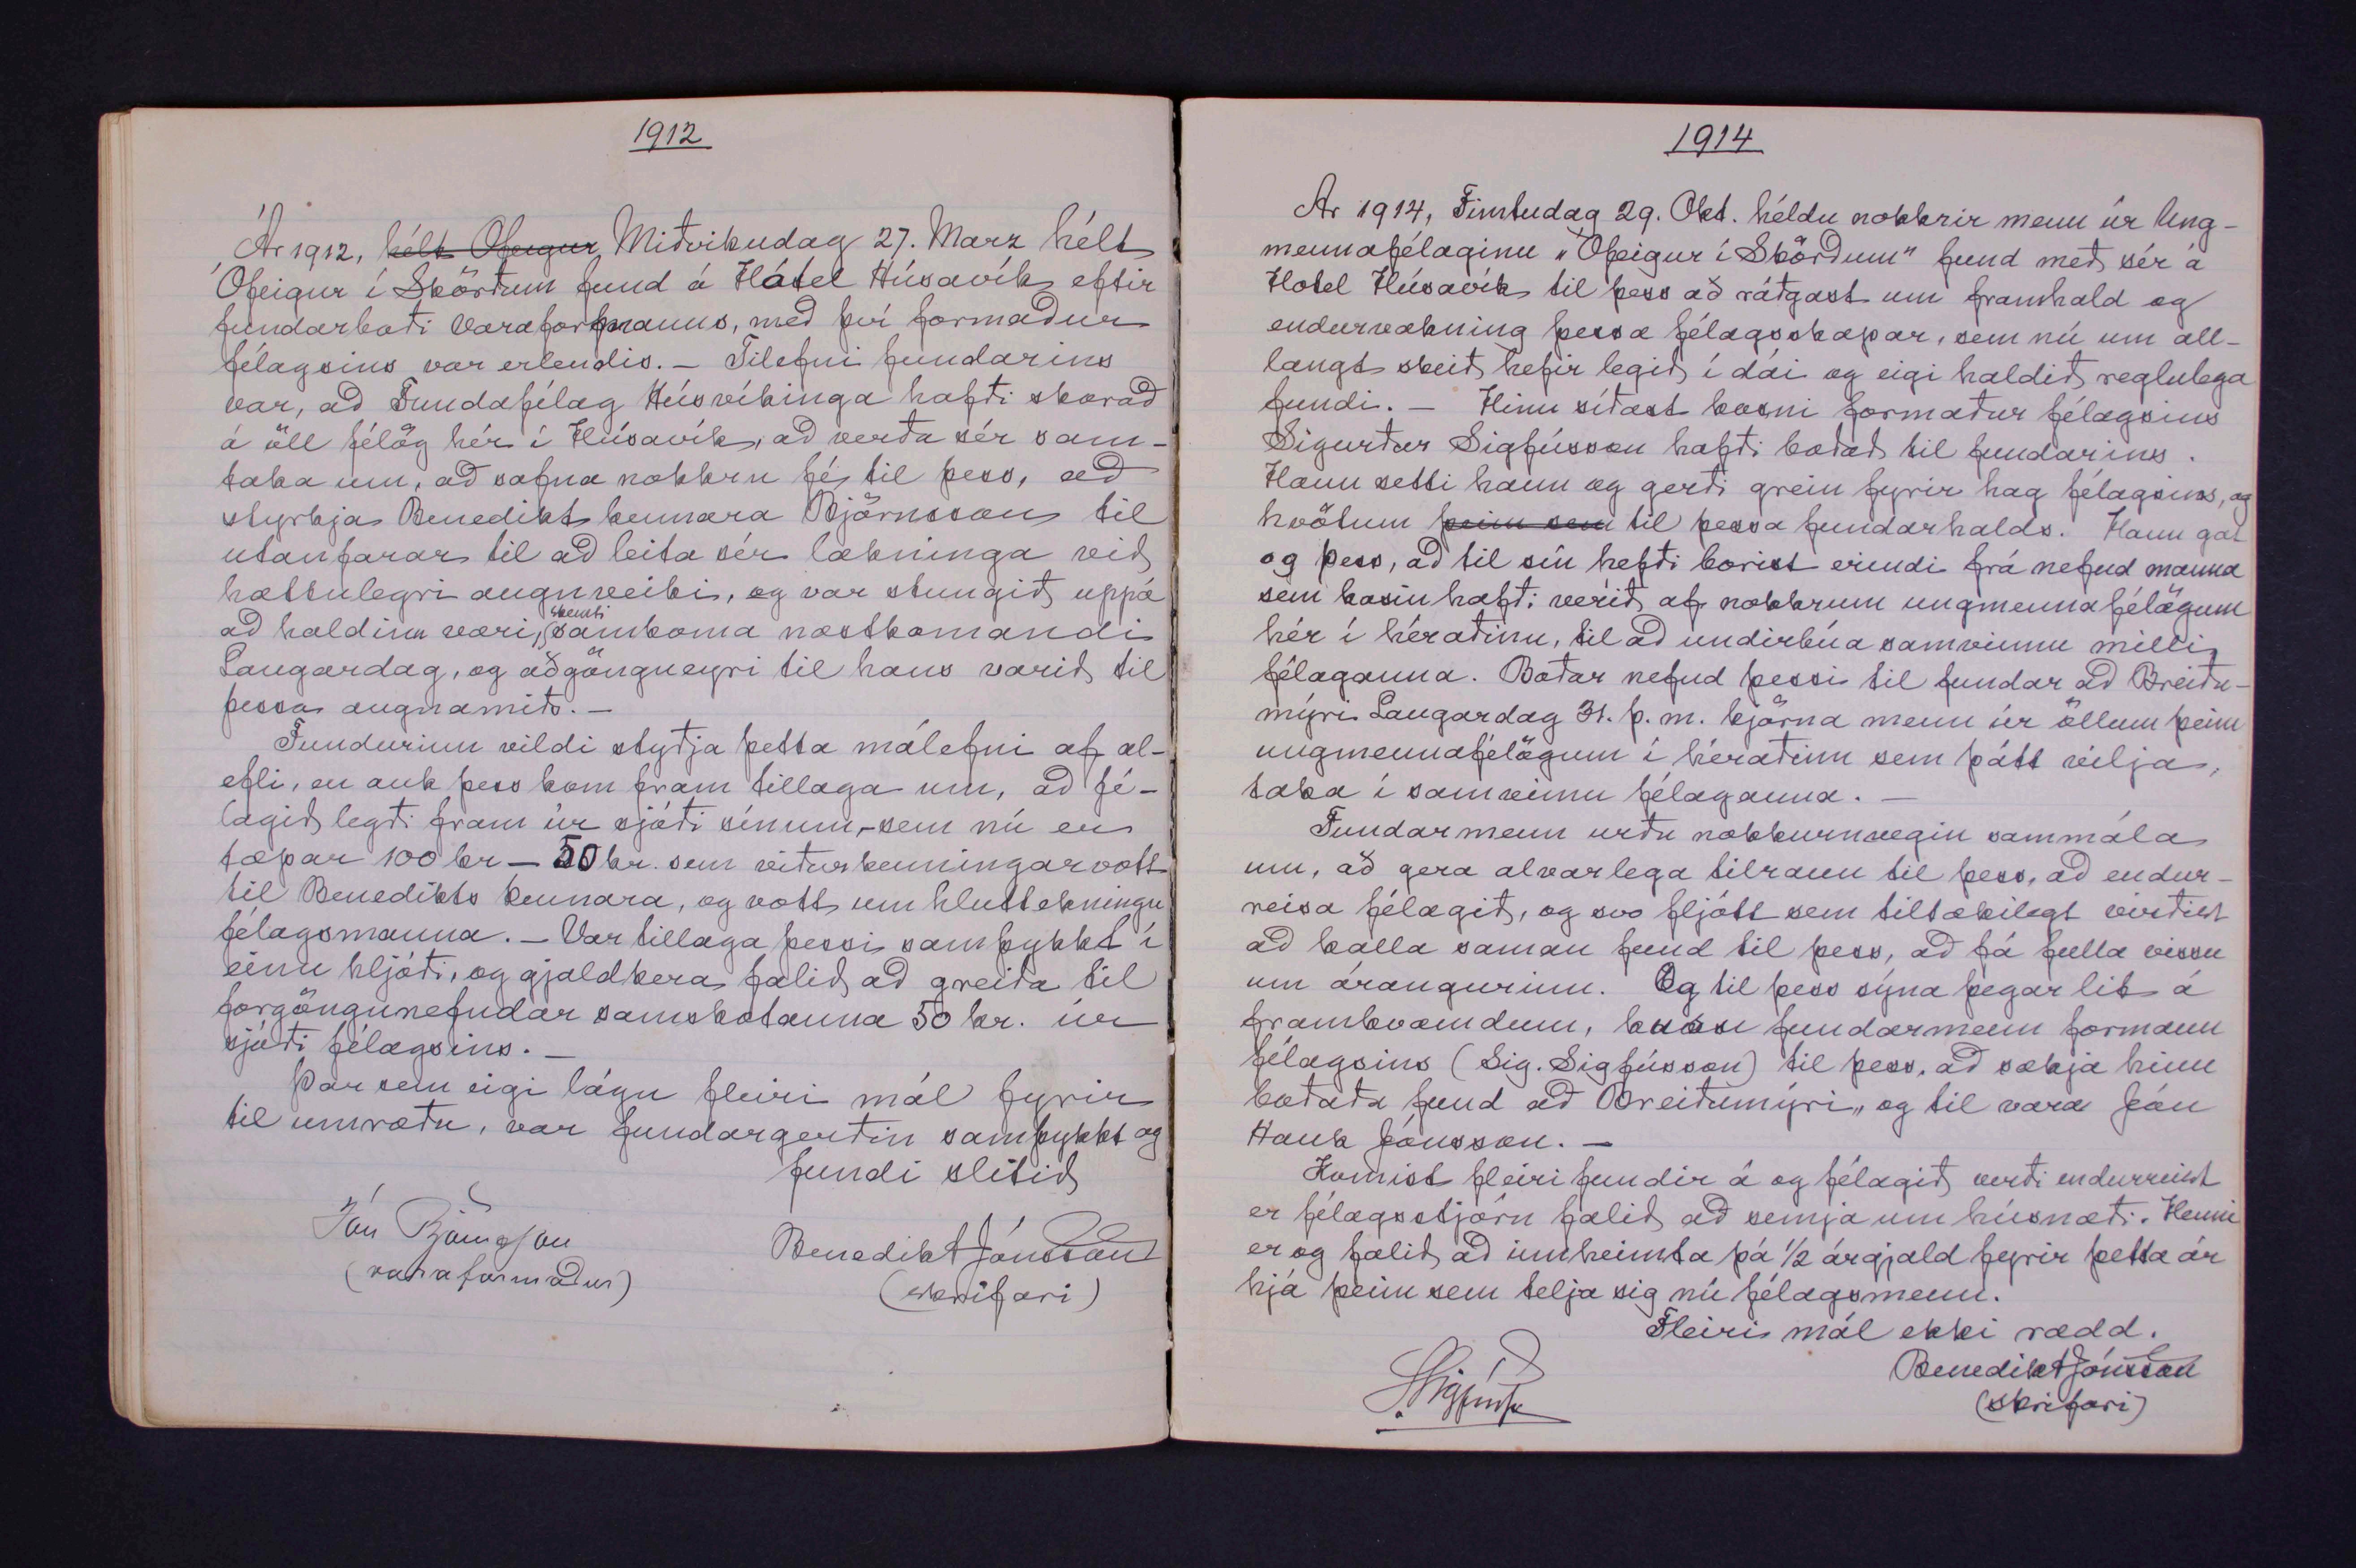 1912
Ár 1912, hélt Ofeigur Miðvikudag 27. Marz hélt
Ófeigur í Skörðum fund á Hótel Húsavík eftir
fundarboði varaformanns, með því formaður
félagsins var erlendis. — Tilefni fundarins
var, að Fundafélag Húsvíkinga hafði skorað
á öll félög hér í Húsavík, að verða sér sam-
taka um, að safna nokkru fé til þess, að
styrkja Benedikt kennara Björnsson til
utanfarar til að leita sér lækninga við
hættulegri augnveiki, og var stungið uppá
að haldinn væri, skemti samkoma næstkomandi
Laugardag, og aðgöngueyri til hans varið til
þessa augnamiðs. —
Fundurinn vildi styðja þetta málefni af al-
efli, en auk þess kom fram tillaga um, að fé-
lagið legði fram úr sjóði sínum, - sem nú er
tæpar 100 kr — 50 kr. sem viðurkenningarvott
til Benedikts kennara, og vott um hluttekningu
félagsmanna. — Var tillaga þessi samþykkt í
einu hljóði, og gjaldkera falið að greiða til
forgöngunefndar samskotanna 50 kr. úr
sjóði félagsins. —
Þar sem eigi lágu fleiri mál fyrir
til umræðu, var fundargerðin samþykkt og
fundi slitið
Jón Björnsson
(varaformaður)
Benedikt Jónsson
(skrifari)
1914
Ár 1914, Fimtudag 29. Okt. héldu nokkrir menn úr Ung-
mennafélaginu "Ófeigur í Skörðum" fund með sér á
Hotel Húsavík til þess að ráðgast um framhald og
endurvakning þessa félagsskapar, sem nú um all-
langt skeið hefir legið í dái og eigi haldið reglulega
fundi. — Hinn síðast kosni formaður félagsins
Sigurður Sigfússon hafði boðað til fundarins.
Hann setti hann og gerði grein fyrir hag félagsins, og
hvötum þeim sem til þessa fundarhalds. Hann gat
og þess, að til sín hefði borist erindi frá nefnd manna
sem kosin hafði verið af nokkrum ungmennafélögum
hér í héraðinu, til að undirbúa samvinnu milli
félaganna. Boðar nefnd þessi til fundar að Breiðu-
mýri Laugardag 31. þ. m. kjörna menn úr öllum þeim
ungmennafélögum í héraðinu sem þátt vilja,
taka í samvinnu félaganna. —
Fundarmenn urðu nokkurnvegin sammála
um, að gera alvarlega tilraun til þess, að endur-
reisa félagið, og svo fljótt sem tiltækilegt virðist
að kalla saman fund til þess, að fá fulla vissu
um árangurinn. Og til þess sýna þegar lit á
framkvæmdum, kusu fundarmenn formann
félagsins (Sig. Sigfússon) til þess, að sækja hinn
boðaða fund að Breiðumýri, og til vara Jón
Hauk Jónsson. —
Komist fleiri fundir á og félagið verði endurreist
er félagsstjórn falið að semja um húsnæði. Henni
er og falið að innheimta þá 1/2 árgjald fyrir þetta ár
hjá þeim sem telja sig nú félagsmenn.
Fleiri mál ekki rædd.
Benedikt Jónsson
(skrifari)